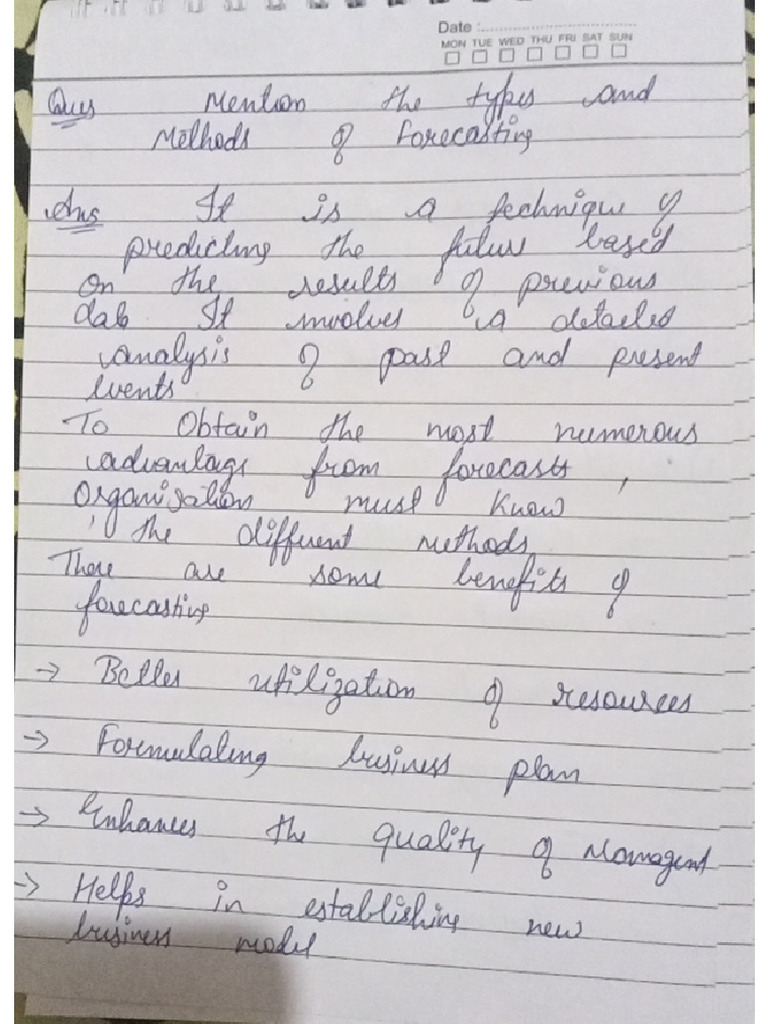 Date :
MON TUE WED THU FRI SAT SUN
Ques Mention the types and
Methods of Forecasting
Ans It is a technique of
predicting the future based
on the results of previous
data It involves a detailed
analysis of past and present
events
To Obtain the most numerous
advantage from forecasts ,
Organisation must know
the different methods
There are some benefits of
forecasting
→ Better utilization of resources
→ Formulating business plan
→ Enhances the quality of Managent
→ Helps in establishing new
business model